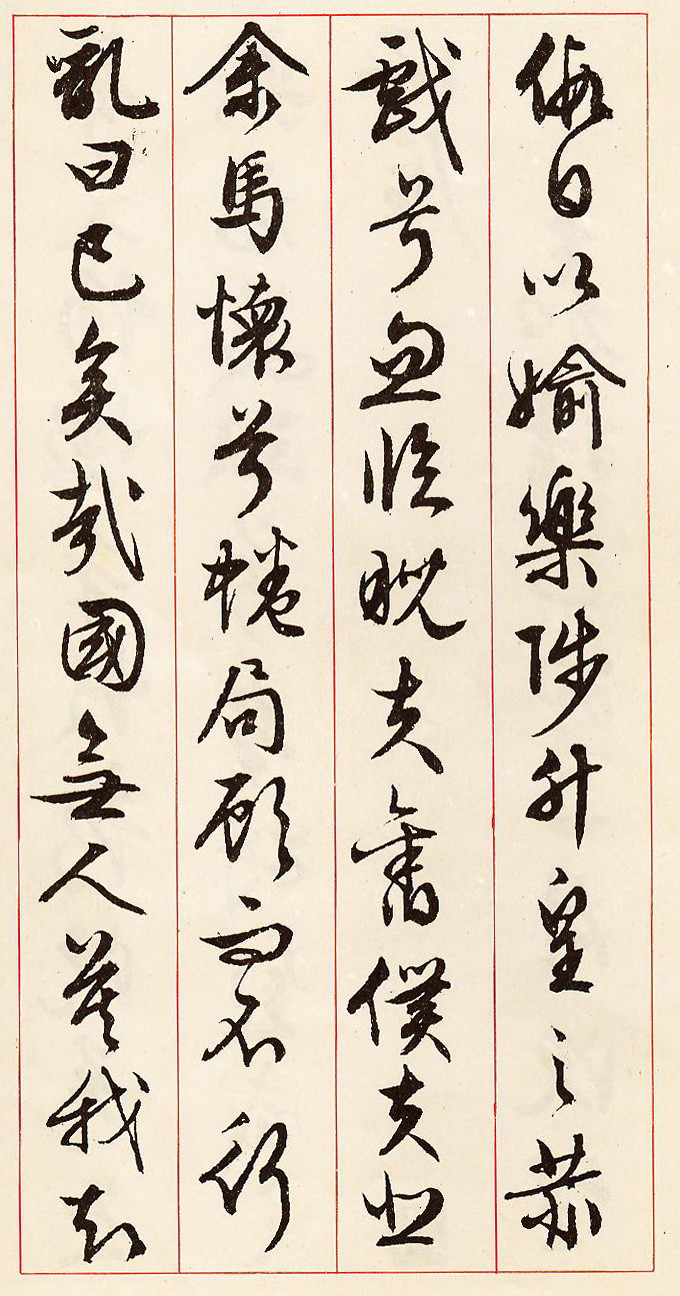 假日以媮樂陟升皇之赫
戲兮忽臨睨夫舊僕夫悲
余馬懷兮蜷局顧而不行
亂曰已矣哉國無人莫我知